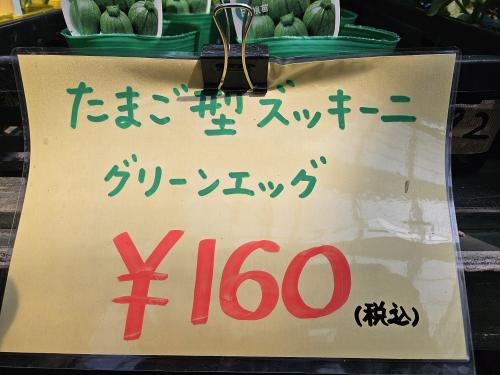 たまご型ズッキーニ
グリーンエッグ
¥160
(税込)